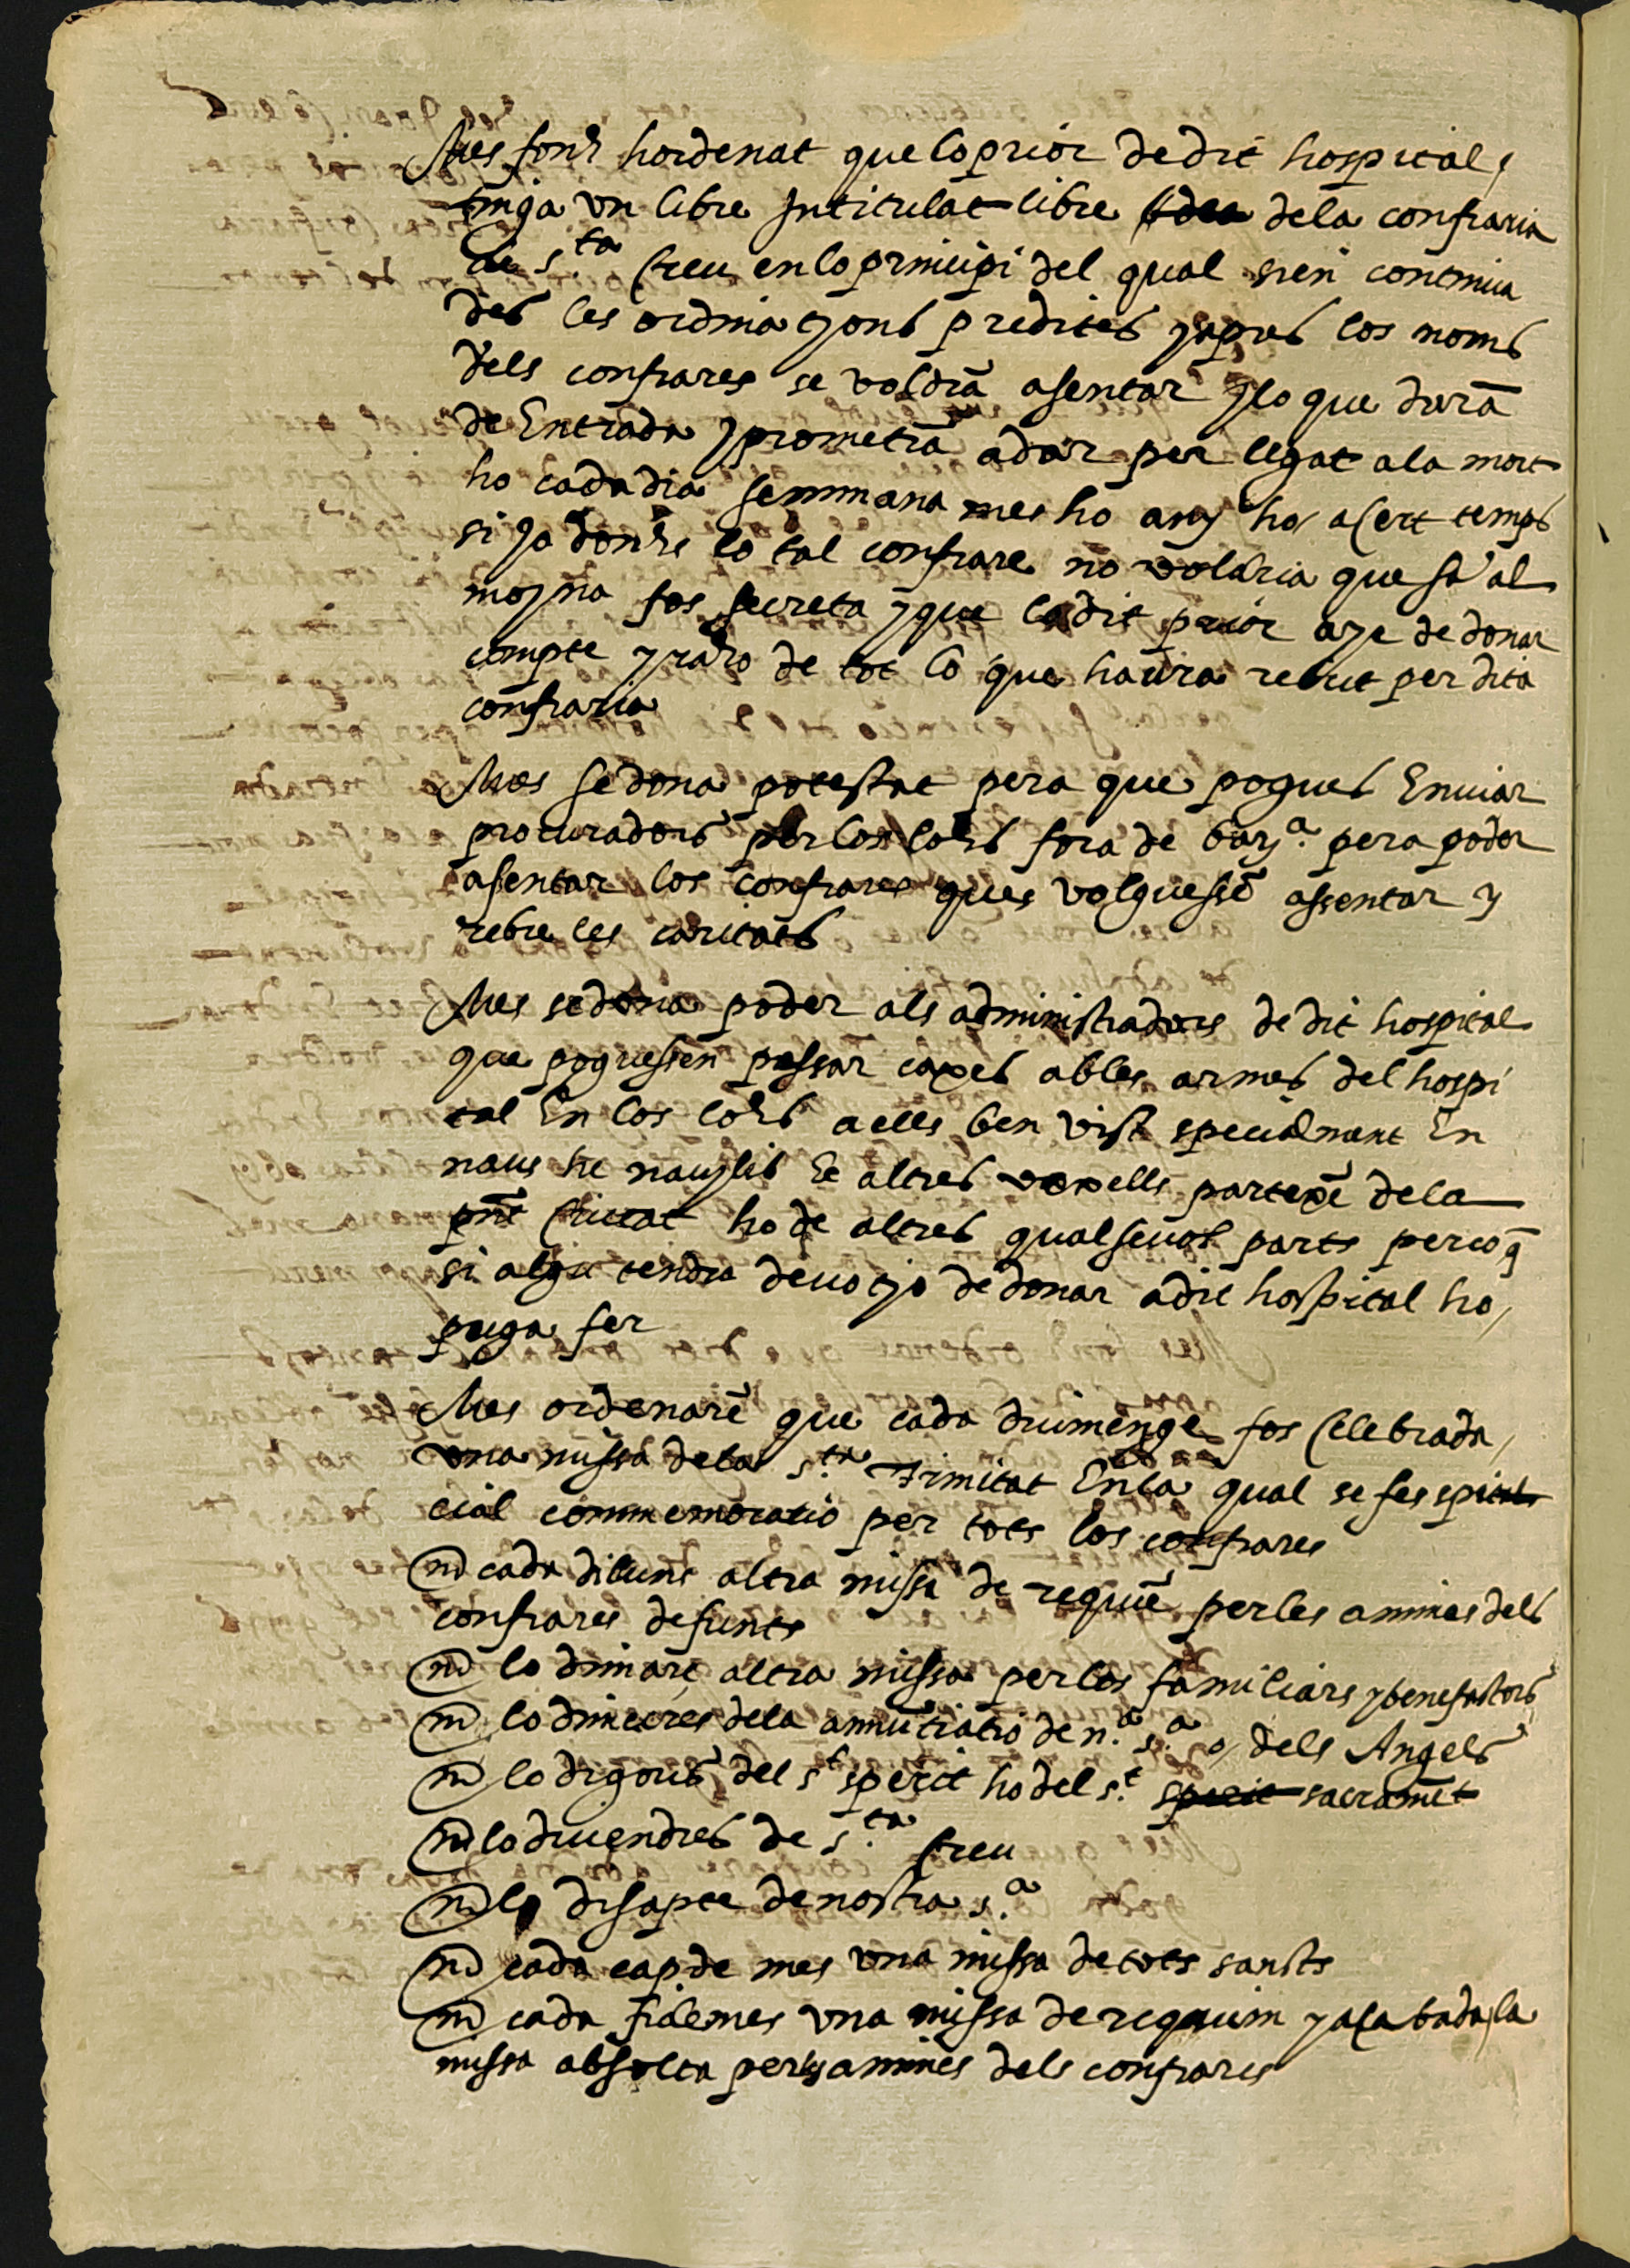 Mes fonch hordenat que lo prior de dit hospital
tinga un libre Intitulat libre dela confraria
de s.ta Creu en lo principi del qual sien continua
des les ordinatjons predites y apres los noms
dels confrares se voldrā asentar y lo que darā
de Entrada y prometrā a dar per llegat a la mort
ho cada dia semmana mes ho any ho a cert temps
si ja donchs lo tal confrare no voldria que sa al
moyna fos secreta y que lo dit prior aye de donar
compte y raho de tot lo que haura rebut per dita
confraria
Mes se dona potestat pera que pogues Enviar
procuradors per los lochs fora de bar.a pera poder
asentar los confrares ques volguessē assentar y
rebre les caritats
Mes se dona poder als administradors de dit hospital
que poguessen possar caxes ab les armes del hospi
tal En los lochs a elles ben vist specialment En
naus he navylis he altres vaxells partexē dela
pñt Ciutat ho de altres qualsevol parts perço q̄
si algu tendra devotjo de donar a dit hospital ho
puga fer
Mes ordenarē que cada diumenge fos Celebrada
una missa dela s.ta Trinitat En la qual se fes spe
cial commemoratio per tots los confrares
Itē cada diluns altra missa de requiē per les animes dels
confrares defunts
Itē lo dimarç altra missa per los familiars y benefactors
Itē lo dimecres dela annūtiatio de n.a s.a o dels Angels
Itē lo digous del st sperit ho del s.t sperit sacramēt
Itē lo divendres de s.ta Creu
Itē lo disapte de nostra s.a
Itē cada cap de mes una missa de tots sancts
Itē cada fi de mes una missa de requiem y acabada la
missa absolta per les animes dels confrares